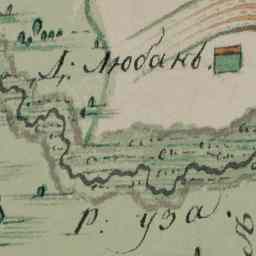 Д: Любакъ.
р: уза.